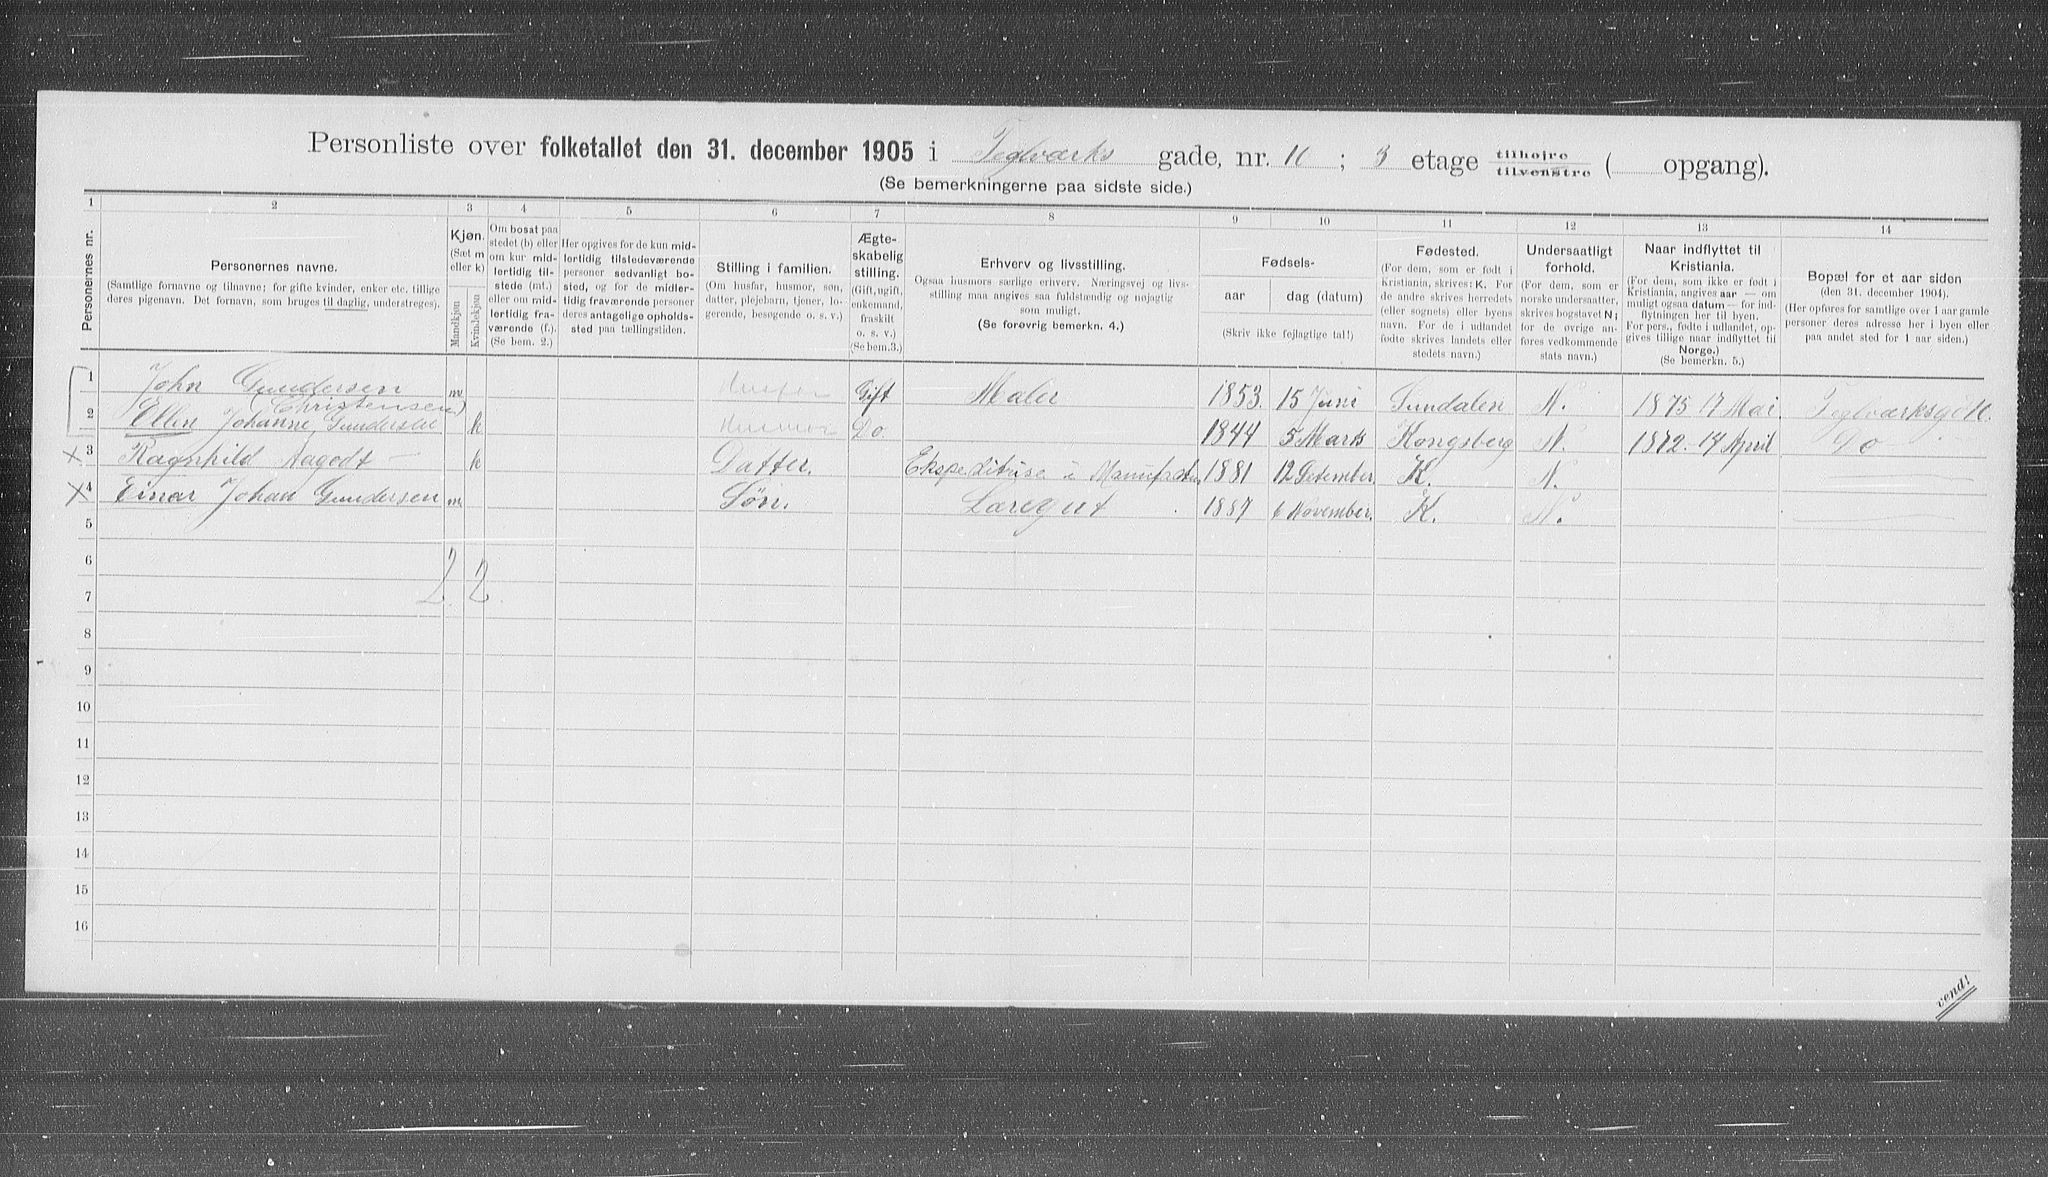 Personliste over folketallet den 31. december 1905 i Teglværks gade, nr. 11 ; 3 etage tilhøire tilvenstre ( opgang).
(Se bemerkningerne paa sidste side.)
1 2 3 4 5 6 7 8 9 10 11 12 13 14
Personernes nr.
Personernes navne.
(Samtlige fornavne og tilnavne; for gifte kvinder, enker etc. tillige
deres pigenavn. Det fornavn, som bruges til daglig, understreges).
Kjøn.
(Sæt m
eller k)
Mandkjøn
Kvindekjøn
Om bosat paa
stedet (b) eller
om kur mid-
lertidig til-
stede (mt.)
eller om mid-
lertidig fra-
værende (f.).
(Se bem. 2.)
Her opgives for de kun mid-
lertidig tilstedeværende
personer sedvanligt bo-
sted, og for de midler-
tidig fraværende personer
deres antagelige opholds-
sted paa tællingstiden.
Stilling i familien.
(Om husfar, husmor, søn,
datter, plejebarn, tjener, lo-
gerende, besøgende o. s. v.)
Ægte-
skabelig
stilling.
(Gift, ugift,
enkemand,
fraskilt
o. s. v.)
(Se bem.3.)
Erhverv og livsstilling.
Ogsaa husmors særlige erhverv. Næringsvej og livs-
stilling maa angives saa fuldstændig og nøjagtig
som muligt.
(Se forøvrig bemerkn. 4.)
Fødsels-
aar
dag (datum)
(Skriv ikke fejlagtige tal!)
Fødested.
(For dem, som er født i
Kristiania, skrives: K. For
de andre skrives herredets
(eller sognets) eller byens
navn. For de i udlandet
fødte skrives landets eller
stedets navn.)
Undersaatligt
forhold.
(For dem, som er
norske undersaatter,
skrives bogstavet N;
for de øvrige an-
føres vedkommende
stats navn.)
Naar indflyttet til
Kristiania.
(For dem, som ikke er født i
Kristiania, angives aar — om
muligt ogsaa datum — for ind-
flytningen her til byen.
For pers., fødte i udlandet, op-
gives tillige naar indflyttet til
Norge.)
(Se bemerkn. 5.)
Bopæl for et aar siden
(den 31. december 1904).
(Her opføres for samtlige over 1 aar gamle
personer deres adresse her i byen eller
paa andet sted for 1 aar siden.)
1 John Gundersen m Husfar Gift Maler 1853. 15 Juni Sundalen N. 1875 17 Mai. Teglværksg. 11.
(Christensen)
2 Ellen Johanne Gundersen k Husmor Do. 1844 5 Marts Kongsberg N. 1872. 14 April Do
3 Ragnhild Aagodt k Datter. Ekspeditrise i Manufaktur 1881 12 Desember. K. N.
4 Einar Johan Gundersen m Søn. Læregut 1887 6 November. K. N.
5
6
2 2
7
8
9
10
11
12
13
14
15
16
vend!